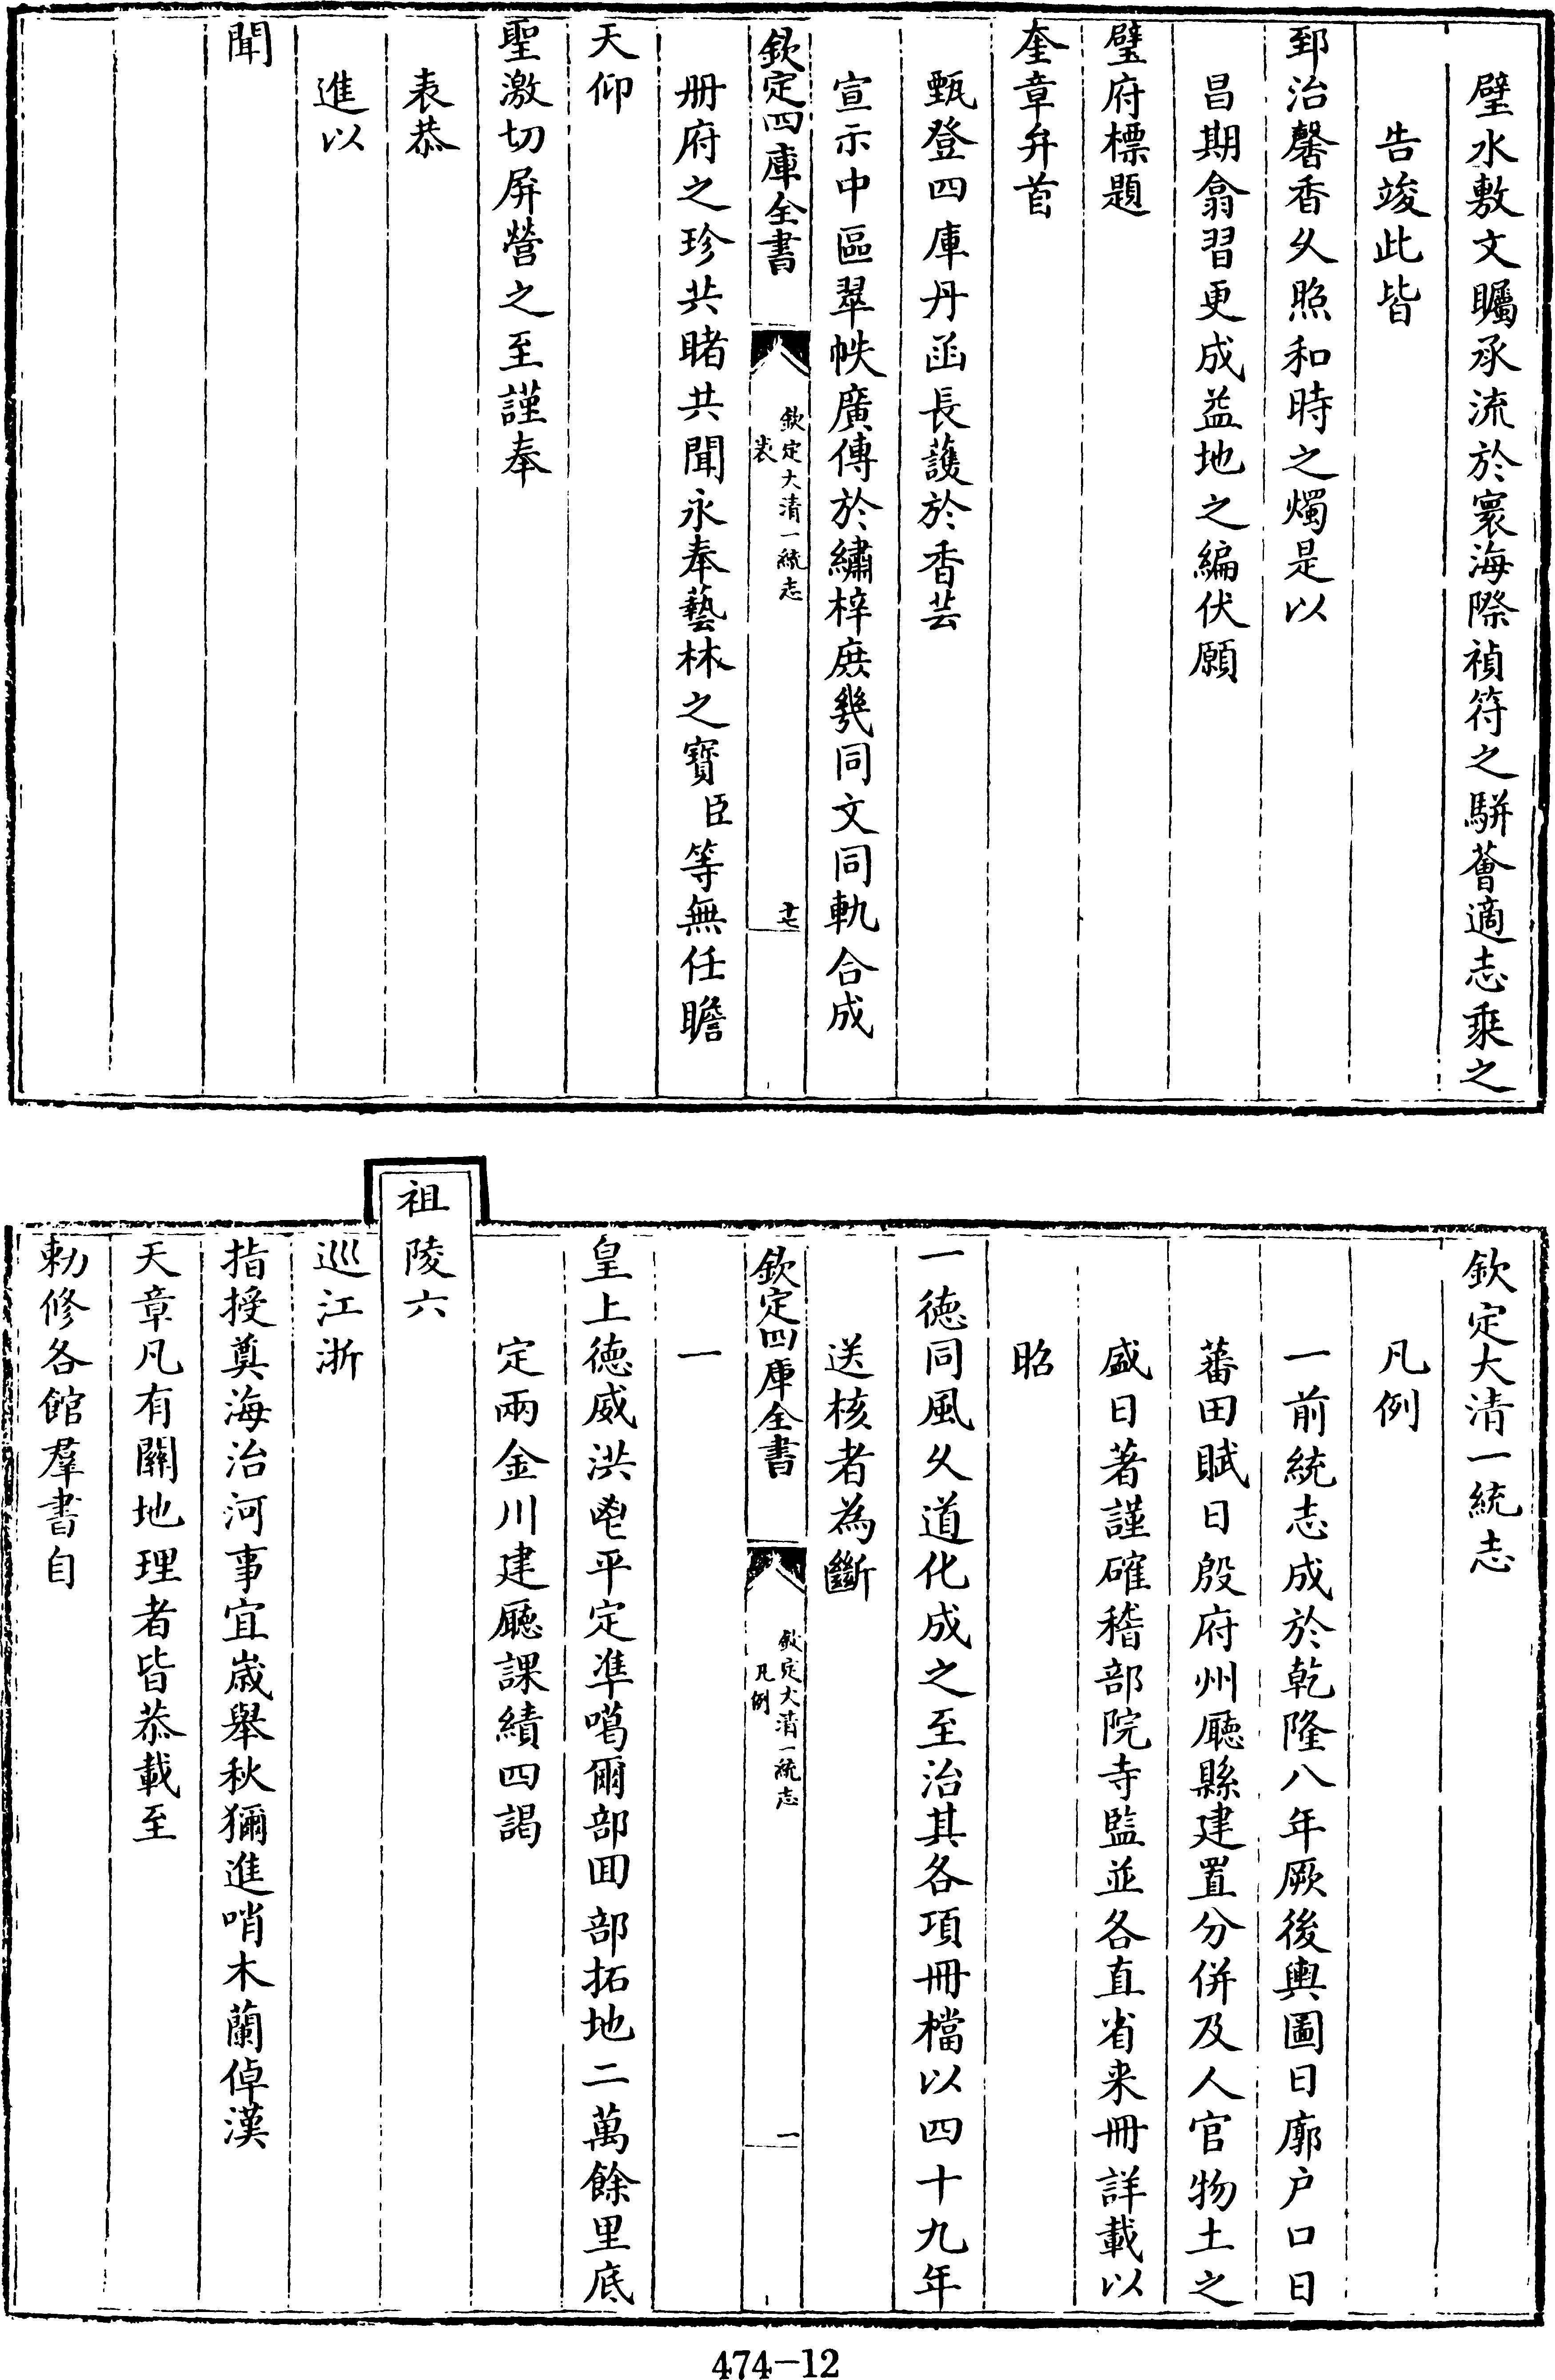 璧水敷文矚承流於寰海際禎符之駢薈適志乘之
告竣此皆
郅治馨香久照和時之燭是以
昌期翕習更成益地之編伏願
璧府標題
奎章弁首
甄登四庫丹函長䕶於香芸
宣示中區翠帙廣傳於繡梓庶幾同文同軌合成
欽定四庫全書
欽定大清一統志
表
十七
冊府之珍共睹共聞永奉藝林之寳臣等無任瞻
天仰
聖激切屏營之至謹奉
表恭
進以
聞
欽定大清一統志
凡例
一前統志成於乾隆八年厥後輿圖日廓户口日
蕃田賦日殷府州廳縣建置分併及人官物土之
盛日著謹確稽部院寺監並各直省來冊詳載以
昭
一徳同風久道化成之至治其各項冊檔以四十九年
送核者為斷
欽定四庫全書
欽定大清一統志
凡例
一
一
皇上徳威洪鬯平定凖噶爾部囬部拓地二萬餘里底
定兩金川建廳課績四謁
祖陵六
巡江浙
指授奠海治河事宜嵗舉秋獮進哨木蘭倬漢
天章凡有闗地理者皆恭載至
勅修各館羣書自
474-12